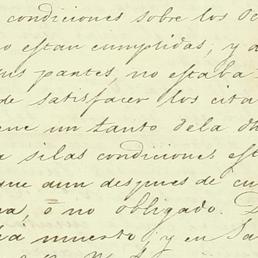 condiciones sobre los
o estan cumplidas, y a
sus partes, no estaba
de satisfacer los cita
ene un tanto dela
a silas condiciones est
que aun despues de cu
na, ó no obligado.
muerto; y en